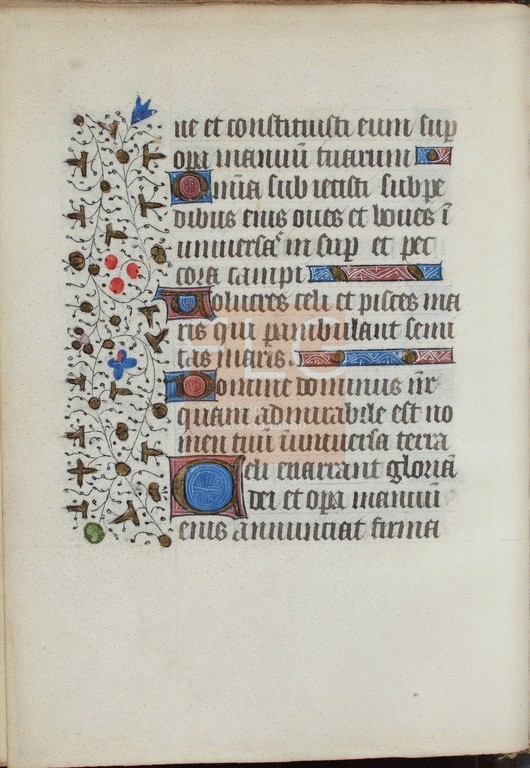 ne et constituisti eum sup
opa manuū tuarum
Omīa subiecisti subpe
dibus eius oues et boues ī
uniuersa in sup et pec
cora campi
Volucres celi et pisces ma
ris qui pambulant semi
tas maris.
Domine dominus nr̄e
quam admirabile est no
men tuū ī uniuersa terra
Celi enarrant gloriā
dei et opa manuū
eius annunciat firma